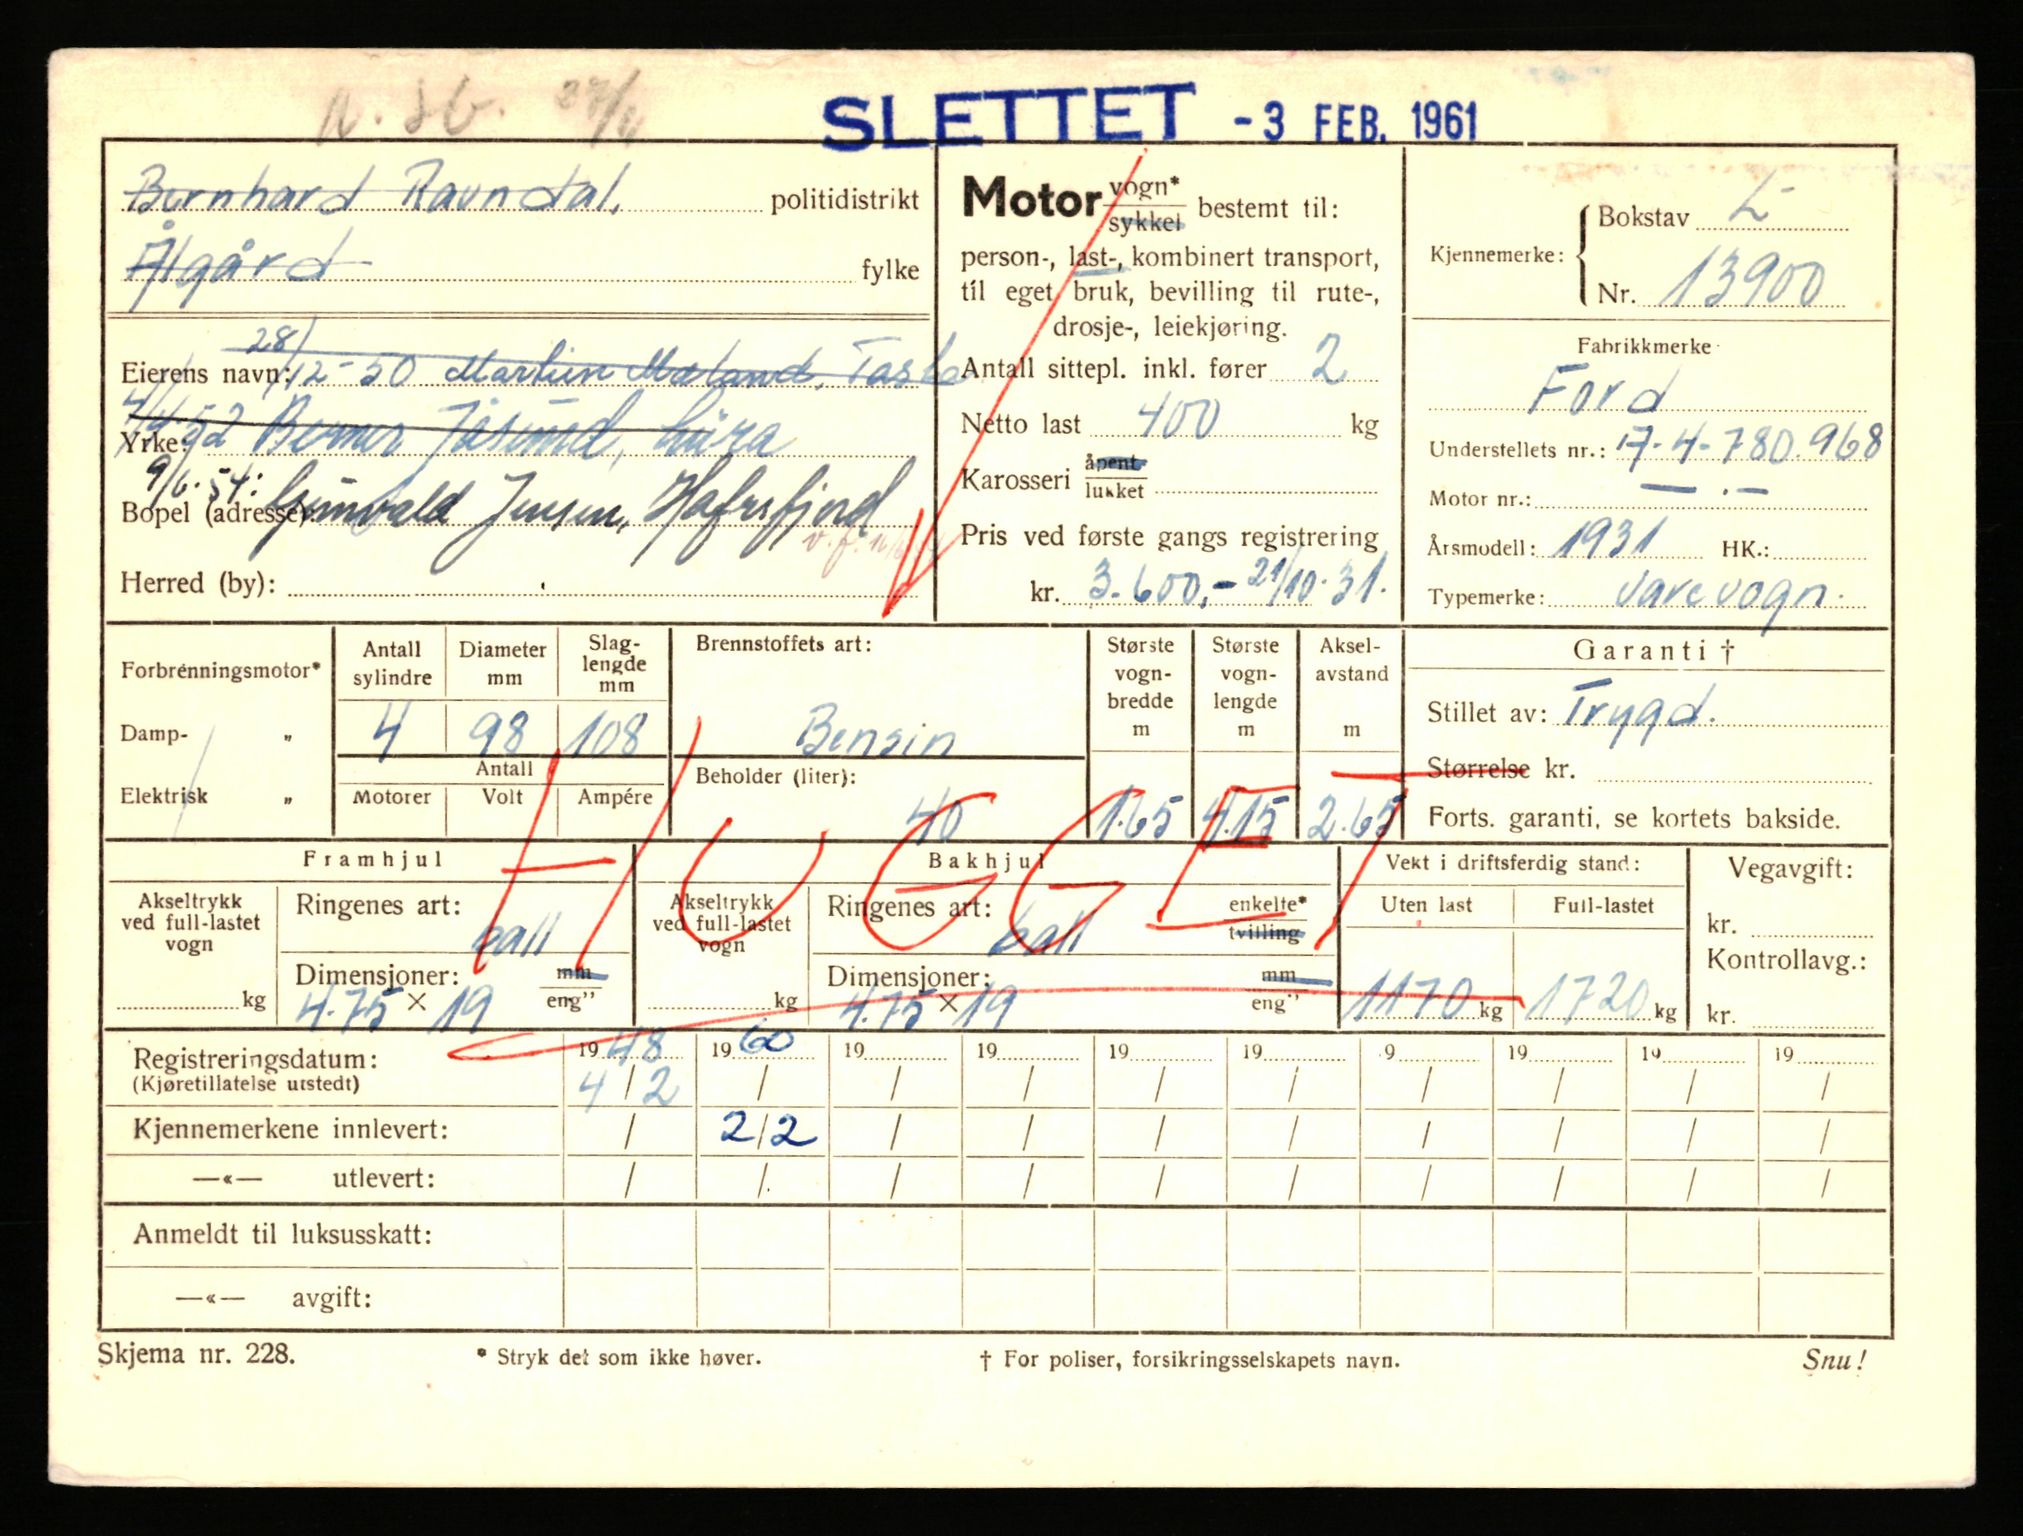 SLETTET - 3 FEB. 1961
Bernhard Ravndal, politidistrikt
Ålgård fylke
28/12-50 Martin Mæland, Tasta
Eierens navn:
4/4.52 Berner Jåsund, Lura
Yrke:
9/6.54: Gunvald Jensen, Hafrsfjord
Bopel (adresse)
Herred (by):
Motor vogn*
sykkel bestemt til:
person-, last-, kombinert transport,
til eget bruk, bevilling til rute-,
drosje-, leiekjøring.
Antall sittepl. inkl. fører 2
Netto last 400 kg
Karosseri åpent
lukket
Pris ved første gangs registrering
kr. 3.600,- 21/10.31.
Kjennemerke: Bokstav L
Nr. 13900
Fabrikkmerke
Ford
Understellets nr.: 17-4-780.968
Motor nr.: — . —
Årsmodell: 1931 HK.:
Typemerke: varevogn.
Forbrenningsmotor*
Damp- „
Elektrisk „
Antall sylindre
Diameter mm
Slag-lengde mm
4 98 108
Antall
Motorer Volt Ampére
Brennstoffets art:
Bensin
Beholder (liter):
40
Største vogn-bredde m
1.65
Største vogn-lengde m
4.15
Aksel-avstand m
2.65
Garanti †
Stillet av: Trygd.
Størrelse kr.
Forts. garanti, se kortets bakside.
HUGGET
Framhjul
Akseltrykk ved full-lastet vogn
kg
Ringenes art:
ball
Dimensjoner: mm
4.75 × 19 eng"
Bakhjul
Akseltrykk ved full-lastet vogn
kg
Ringenes art: enkelte*
ball tvilling
Dimensjoner: mm
4.75 × 19 eng"
Vekt i driftsferdig stand:
Uten last Full-lastet
1170 kg 1720 kg
Vegavgift:
kr.
Kontrollavg.:
kr.
Registreringsdatum: 19 48 19 60 19 19 19 19 19 19 19 19
(Kjøretillatelse utstedt) 4 / 2 / / / / / / / / /
Kjennemerkene innlevert: / 2/2 / / / / / / / /
—«— utlevert: / / / / / / / / / /
Anmeldt til luksusskatt:
—«— avgift:
Skjema nr. 228. * Stryk det som ikke høver. † For poliser, forsikringsselskapets navn. Snu!